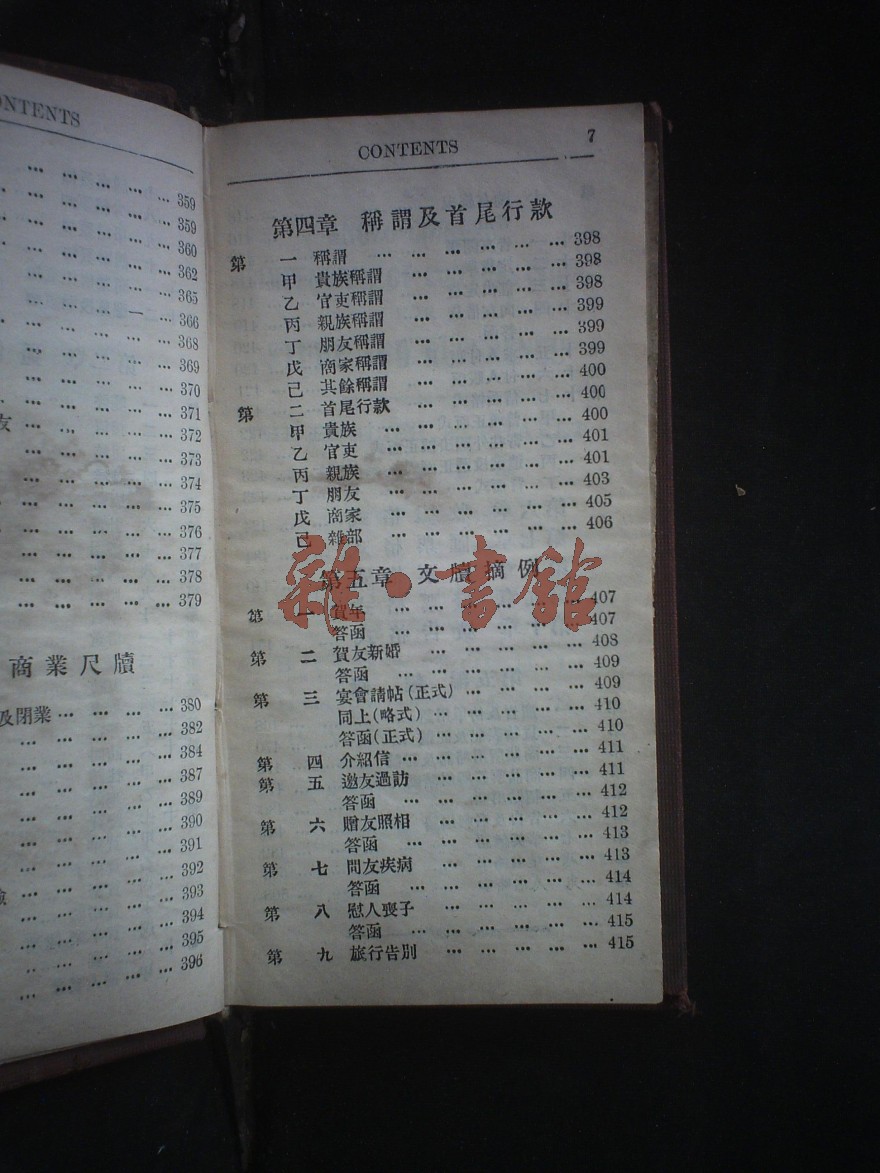 ONTENTS
... ... ... ... 359
... ... ... ... 359
... ... ... ... 360
... ... ... ... 362
... ... ... ... 365
... ... ... ... 366
... ... ... ... 368
... ... ... ... 369
... ... ... ... 370
... ... ... ... 371
友 ... ... ... ... 372
... ... ... ... 373
... ... ... ... 374
... ... ... ... 375
... ... ... ... 376
... ... ... ... 377
... ... ... ... 378
... ... ... ... 379
商業尺牘
及閉業 ... ... ... ... 380
... ... ... ... 382
... ... ... ... 384
... ... ... ... 387
... ... ... ... 389
... ... ... ... 390
... ... ... ... 391
... ... ... ... 392
... ... ... ... 393
... ... ... ... 394
... ... ... ... 395
... ... ... ... 396
CONTENTS 7
第四章 稱謂及首尾行款
第一 稱謂 ... ... ... ... ... ... 398
甲 貴族稱謂 ... ... ... ... ... 398
乙 官吏稱謂 ... ... ... ... ... 398
丙 親族稱謂 ... ... ... ... ... 399
丁 朋友稱謂 ... ... ... ... ... 399
戊 商家稱謂 ... ... ... ... ... 399
己 其餘稱謂 ... ... ... ... ... 400
第二 首尾行款 ... ... ... ... ... 400
甲 貴族 ... ... ... ... ... ... 400
乙 官吏 ... ... ... ... ... ... 401
丙 親族 ... ... ... ... ... ... 401
丁 朋友 ... ... ... ... ... ... 403
戊 商家 ... ... ... ... ... ... 405
己 雜部 ... ... ... ... ... ... 406
第五章 文牘摘例
第一 賀年 ... ... ... ... ... ... 407
答函 ... ... ... ... ... ... 407
第二 賀友新婚 ... ... ... ... ... 408
答函 ... ... ... ... ... ... 409
第三 宴會請帖(正式) ... ... ... ... 409
同上(略式) ... ... ... ... ... 410
答函(正式) ... ... ... ... ... 410
第四 介紹信 ... ... ... ... ... 411
第五 邀友過訪 ... ... ... ... ... 411
答函 ... ... ... ... ... ... 412
第六 贈友照相 ... ... ... ... ... 412
答函 ... ... ... ... ... ... 413
第七 問友疾病 ... ... ... ... ... 413
答函 ... ... ... ... ... ... 414
第八 慰人喪子 ... ... ... ... ... 414
答函 ... ... ... ... ... ... 415
第九 旅行告別 ... ... ... ... ... 415
雜·書館